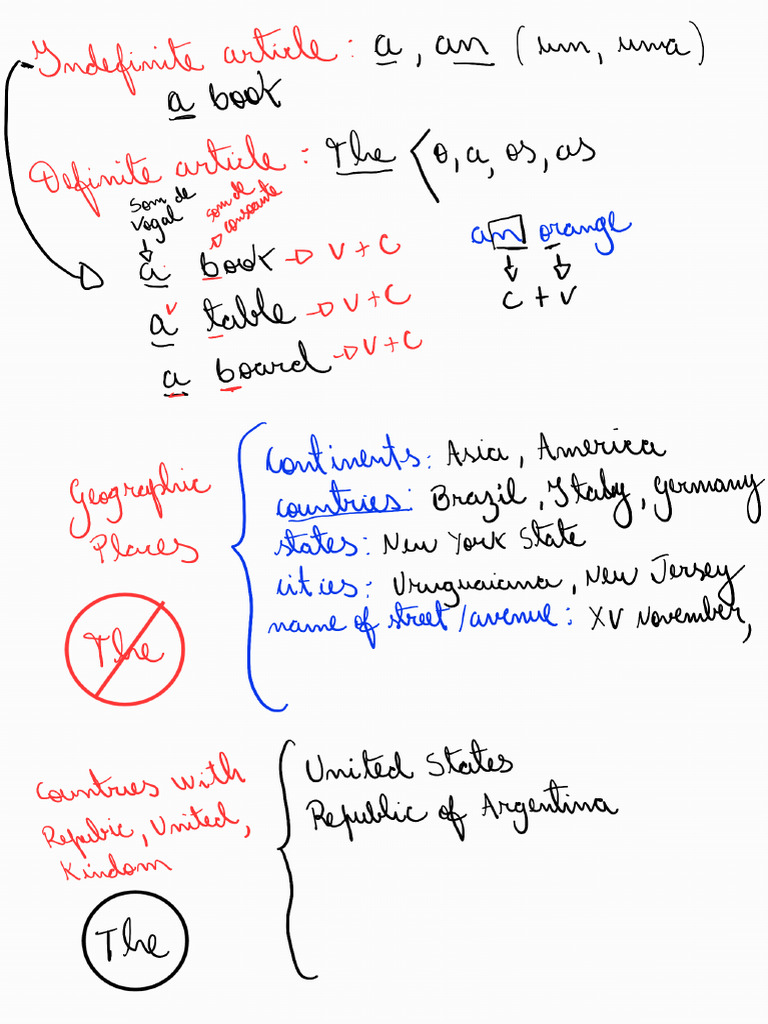 Indefinite article: a, an (um, uma)
a book
Definite article: The < o, a, os, as
Som de vogal
som de consoante
a book → V + C
a table → V + C
v
a board → V + C
an orange
C + V
Geographic
Places
The
Continents: Asia, America
countries: Brazil, Italy, Germany
states: New York State
cities: Uruguaiana, New Jersey
name of street/avenue: XV November,
Countries with
Repubic, United,
Kindom
The
United States
Republic of Argentina